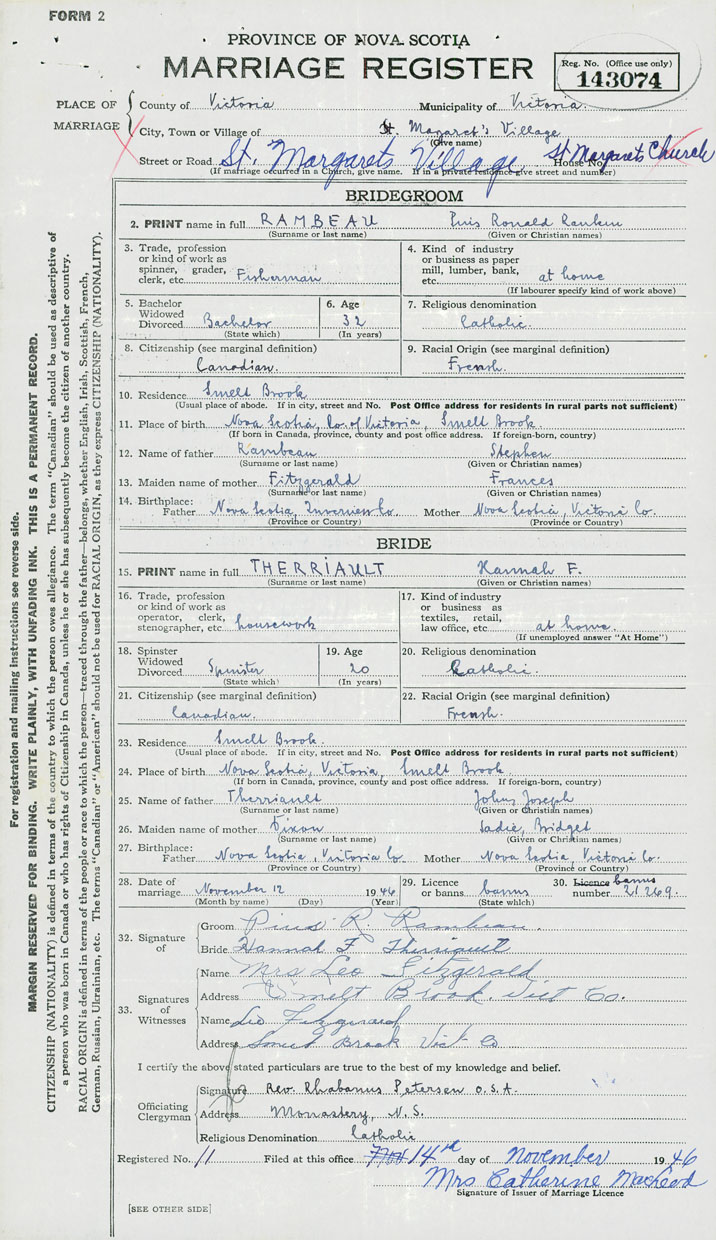 FORM 2
PROVINCE OF NOVA SCOTIA
MARRIAGE REGISTER
Reg. No. (Office use only)
143074
PLACE OF MARRIAGE
County of Victoria Municipality of Victoria
City, Town or Village of St. Magaret's Village
(Give name)
Street or Road St. Margarets Village House No. St Margarets Church
(If marriage occurred in a Church, give name. If in a private residence give street and number)
BRIDEGROOM
2. PRINT name in full RAMBEAU Pius Ronald Rankin
(Surname or last name) (Given or Christian names)
3. Trade, profession
or kind of work as
spinner, grader,
clerk, etc. Fisherman
4. Kind of industry
or business as paper
mill, lumber, bank,
etc. at home
(If labourer specify kind of work above)
5. Bachelor
Widowed
Divorced Bachelor
(State which)
6. Age
32
(In years)
7. Religious denomination
Catholic.
8. Citizenship (see marginal definition)
Canadian.
9. Racial Origin (see marginal definition)
French.
10. Residence Smelt Brook
(Usual place of abode. If in city, street and No. Post Office address for residents in rural parts not sufficient)
11. Place of birth Nova Scotia, Co. of Victoria, Smelt Brook
(If born in Canada, province, county and post office address. If foreign-born, country)
12. Name of father Rambeau Stephen
(Surname or last name) (Given or Christian names)
13. Maiden name of mother Fitzgerald Frances
(Surname or last name) (Given or Christian names)
14. Birthplace:
Father Nova Scotia, Inverness Co. Mother Nova Scotia, Victoria Co.
(Province or Country) (Province or Country)
BRIDE
15. PRINT name in full THERRIAULT Hannah F.
(Surname or last name) (Given or Christian names)
16. Trade, profession
or kind of work as
operator, clerk,
stenographer, etc. housework
17. Kind of industry
or business as
textiles, retail,
law office, etc. at home.
(If unemployed answer "At Home")
18. Spinster
Widowed
Divorced Spinster
(State which)
19. Age
20
(In years)
20. Religious denomination
Catholic.
21. Citizenship (see marginal definition)
Canadian.
22. Racial Origin (see marginal definition)
French.
23. Residence Smelt Brook.
(Usual place of abode. If in city, street and No. Post Office address for residents in rural parts not sufficient)
24. Place of birth Nova Scotia, Victoria, Smelt Brook
(If born in Canada, province, county and post office address. If foreign-born, country)
25. Name of father Therriault John, Joseph
(Surname or last name) (Given or Christian names)
26. Maiden name of mother Dixon Sadie, Bridget
(Surname or last name) (Given or Christian names)
27. Birthplace:
Father Nova Scotia, Victoria Co. Mother Nova Scotia, Victoria Co.
(Province or Country) (Province or Country)
28. Date of
marriage November 12 1946
(Month by name) (Day) (Year)
29. Licence
or banns banns
(State which)
30. Licence banns
number 21269.
32. Signature of
Groom Pius R. Rambeau.
Bride Hannah F Therriault
33. Signatures of Witnesses
Name Mrs Leo Fitzgerald
Address Smelt Brook Vict Co.
Name Leo Fitzgerald
Address Smelt Brook Vict Co
I certify the above stated particulars are true to the best of my knowledge and belief.
Officiating Clergyman
Signature Rev. Rhabanus Petersen O.S.A.
Address Monastery, N.S.
Religious Denomination Catholic
Registered No. 11 Filed at this office Nov 14th day of November 1946
Mrs Catherine MacLeod
Signature of Issuer of Marriage Licence
[SEE OTHER SIDE]
For registration and mailing instructions see reverse side.
MARGIN RESERVED FOR BINDING. WRITE PLAINLY, WITH UNFADING INK. THIS IS A PERMANENT RECORD.
CITIZENSHIP (NATIONALITY) is defined in terms of the country to which the person owes allegiance. The term "Canadian" should be used as descriptive of
a person who was born in Canada or who has rights of Citizenship in Canada, unless he or she has subsequently become the citizen of another country.
RACIAL ORIGIN is defined in terms of the people or race to which the person—traced through the father—belongs, whether English, Irish, Scottish, French,
German, Russian, Ukrainian, etc. The terms "Canadian" or "American" should not be used for RACIAL ORIGIN, as they express CITIZENSHIP (NATIONALITY).